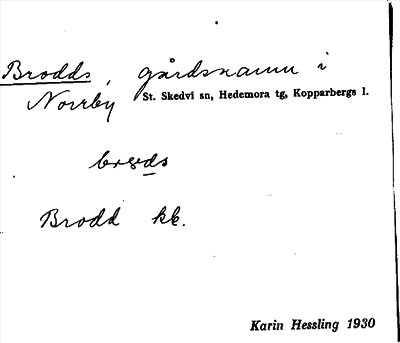 Brodds, gårdsnamn i
Norrby St. Skedvi sn, Hedemora tg, Kopparbergs l.
Brodd kk.
Karin Hessling 1930